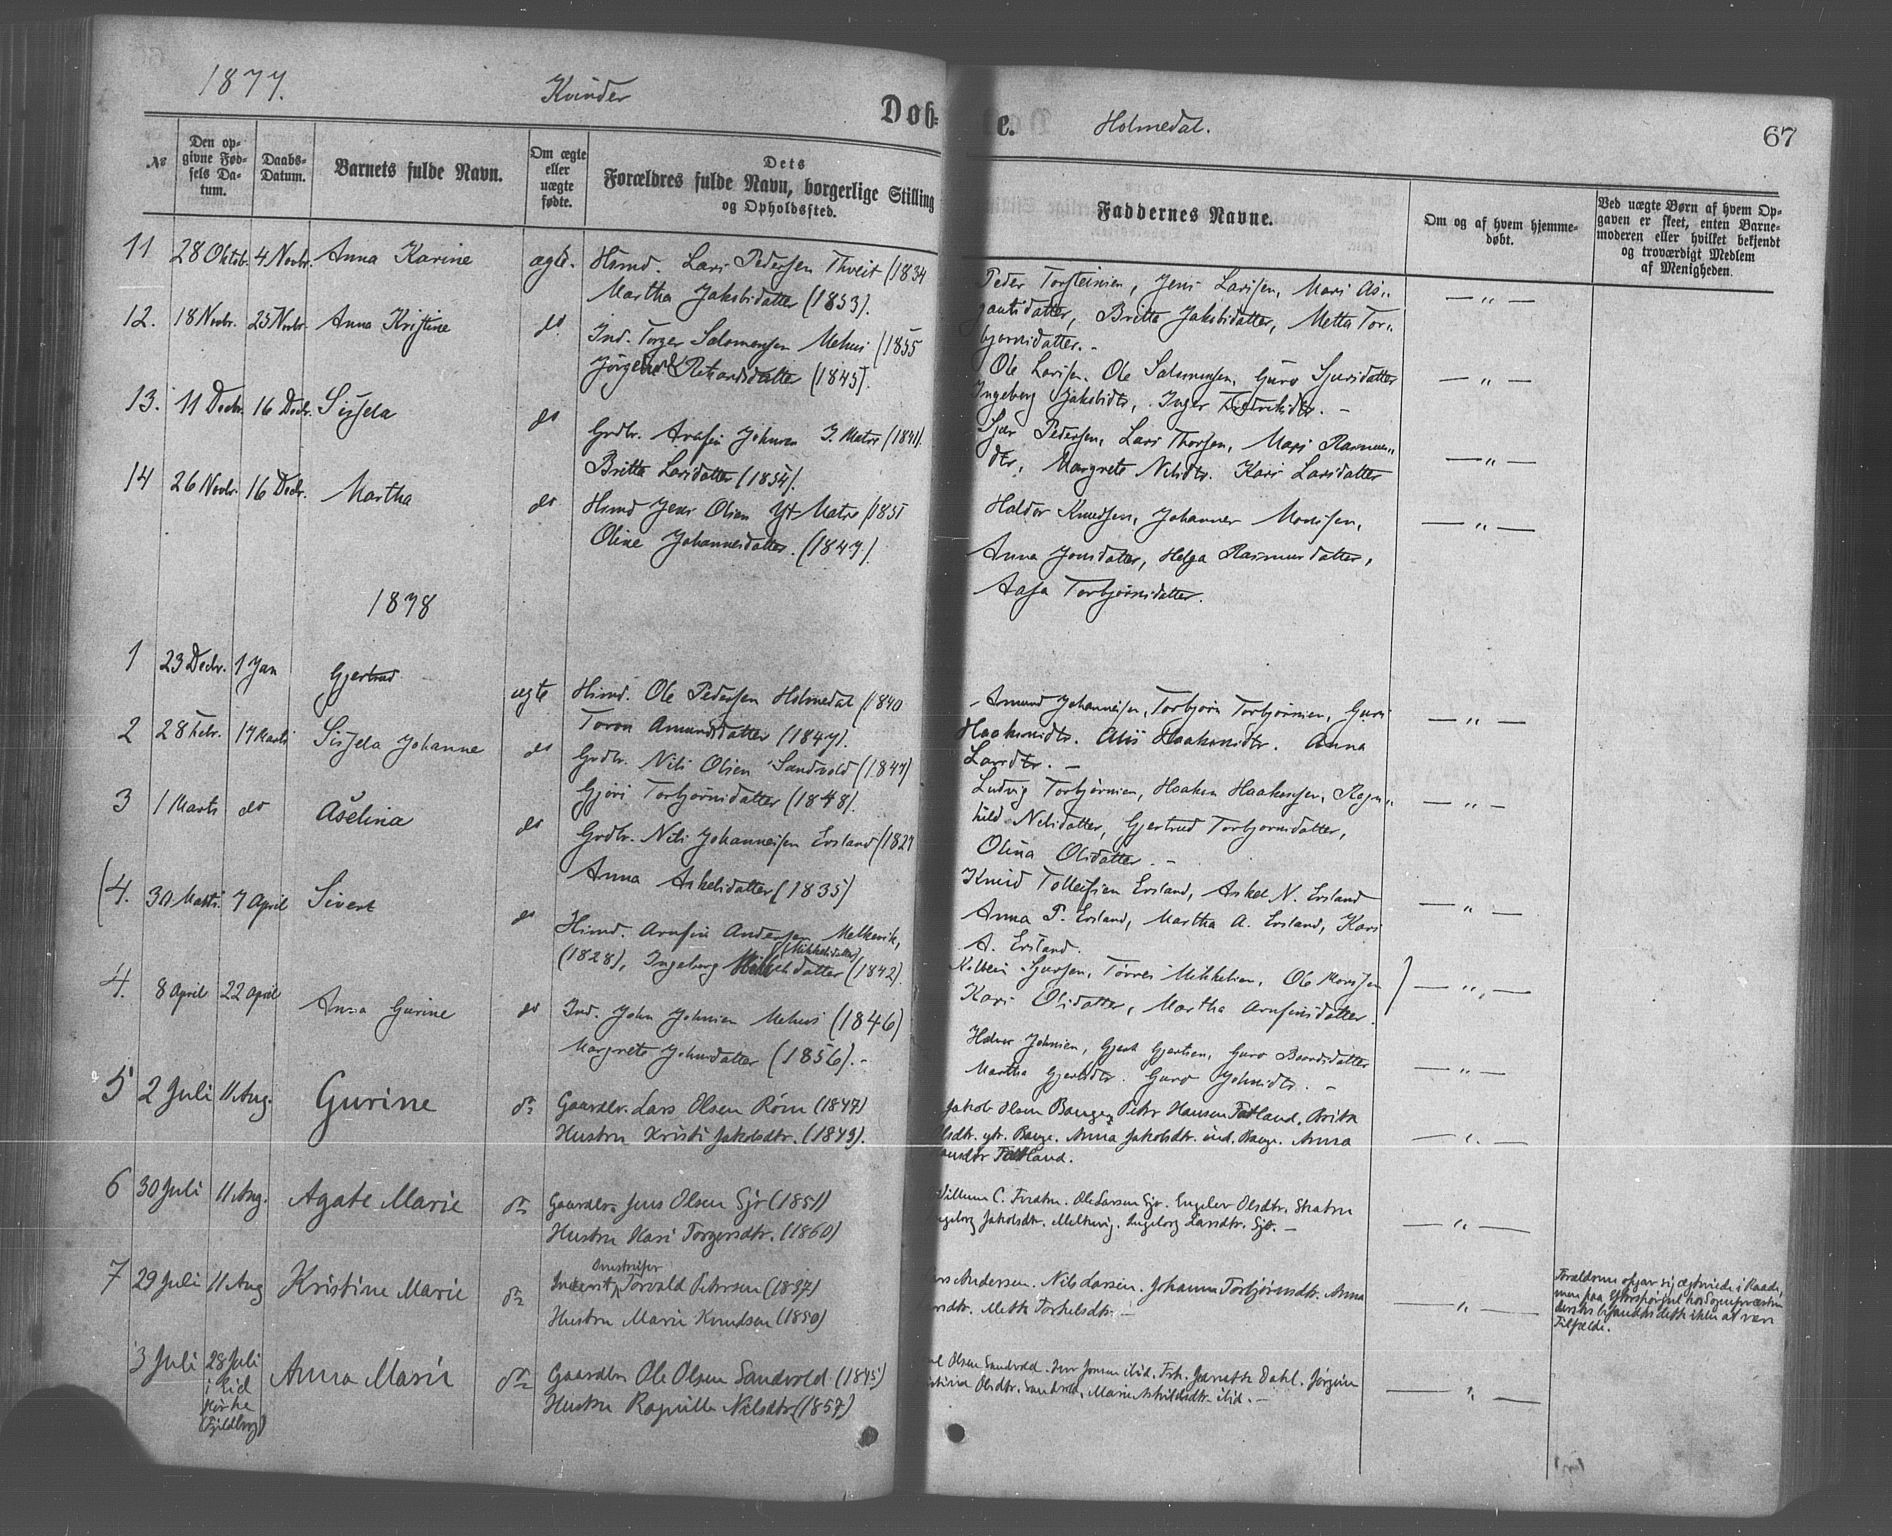 1877.
Kvinder
Døb-
te.
Holmedal.
67
No
Den op-
givne Fød-
sels Da-
tum.
Daabs-
Datum.
Barnets fulde Navn.
Om ægte
eller
uægte
fødte.
Dets
Forældres fulde Navn, borgerlige Stilling
og Opholdssted.
Faddernes Navne.
Om og af hvem hjemme-
døbt.
Ved uægte Børn af hvem Op-
gaven er skeet, enten Barne-
moderen eller hvilket bekjendt
og troværdigt Medlem
af Menigheden.
11 28 Oktob. 4 Novbr. Anna Karine ægte. Hsmd. Lars Pedersen Thveit (1834
Martha Jakobsdatter (1853).
Peder Torsteinsen, Jens Larssen, Mari As-
gautsdatter, Britta Jakobsdatter, Metta Tor-
bjørnsdatter. -
12. 18 Novbr. 25 Novbr. Anna Kristine do. Ind. Torger Salomonsen Mehus (1855
(1845).
Ole Larssen. Ole Salomonsen, Guro Sjursdatter
Ingeborg Jakobsdtr, Inger -
13. 11 Decbr. 16 Decbr. Sissela do Grdbr. Arnfin Johnsen I. Matre (1841).
Britta Larsdatter (1854).
Sjur Pedersen, Lars Thorsen, Mari Rasmus-
dtr, Margrete Nilsdtr. Kari Larsdatter
14 26 Novbr. 16 Decbr. Martha do Hsmd Jens Olsen Yt. Matre (1851
Oline Johannesdatter. (1847).
Haldor Knudsen, Johannes Monssen,
Anna Jonsdatter, Helga Rasmusdatter,
Aasa Torbjørnsdatter.
1878
1 23 Decbr. 1 Jan Gjertrud ægte Hsmd. Ole Pedersen Holmedal (1840
Toron Amundsdatter (1847).
Amund Johannessen, Torbjørn Torbjørnsen, Guri
Haakonsdtr. Alis Haakonsdtr. Anna
Larsdtr. -
2 28 Febr. 17 Marts Sissela Johanne do Grdbr. Nils Olsen Sandvold (1847)
Gjøri Torbjørnsdatter (1848).
Ludvig Torbjørnsen, Haakon Haakonsen, Ragn-
hild Nilsdatter, Gjertrud Torbjørnsdatter,
Olina Olsdatter. -
3 1 Marts do Aselina do Grdbr. Nils Johannessen Ersland (1824
Anna Askelsdatter (1835)
Knud Tollefsen Ersland, Askel N. Ersland
Anna P. Ersland, Martha A. Ersland, Kari
A. Ersland.
(4. 30 Marts. 7 April Sivert do Hsmd. Arnfin Andersen Melkevik,
(Mikkelsdatter)
(1828), Ingeborg (1842).
Sjursen, Tørres Mikkelsen, Ole Monssen
Kari Olsdatter, Martha Arnfinsdatter.)
4. 8 April 22 April Anna Gurine do Ind. John Johnsen Mehus (1846)
Margrete Johnsdatter (1856). -
Halvor Johnsen, Gjert Gjertsen, Guro Baardsdatter
Martha Gjertsdtr. Guro Johnsdtr. -
5 2 Juli 11 Aug. Gurine do Gaardbr. Lars Olsen Røm (1847)
Hustru Kristi Jakobsdtr. (1849).
Jakob Olsen Bauge, Petr Hansen Tatland, Brita
Olsdtr. ytr. Bauge. Anna Jakobsdtr. ind. Bauge. Anna
Tatland.
6 30 Juli 11 Aug. Agate Marie do Gaardbr. Jens Olsen Sjo (1851)
Hustru Kari Torgersdtr. (1860)
Villum C. Ole Larsen Sjo. Engelev Olsdtr.
Ingeborg Jakobsdtr. Melkevig. Ingeborg Larsdtr. Sjo. -
7 29 Juli 11 Aug Kristine Marie do Omstreifer
Torvald Petersen (1837)
Hustru Marie Knudsen (1850)
Lars Andersen. Nils Larsen. Johanna Torbjørnsdtr. Anna
Mette Torkelsdtr. -
Forældrene opgav sig ægteviede i Raade,
men paa Efterspørgsel hos Sognepræsten
dersteds befandtes dette ikke at være
Tilfælde.
3 Juli 28 Juli
i Eid
Kirke
(Fjeldberg)
Anna Marie do Gaardbr Ole Olsen Sandvold (1845)
Hustru Ragnilla Nilsdtr (1857)
Olsen Sandvold. Iver Jonsen ibid. Frk. Jeanette Dahl. Jørgine
Olsdtr. Sandvold, Marie ibid. -